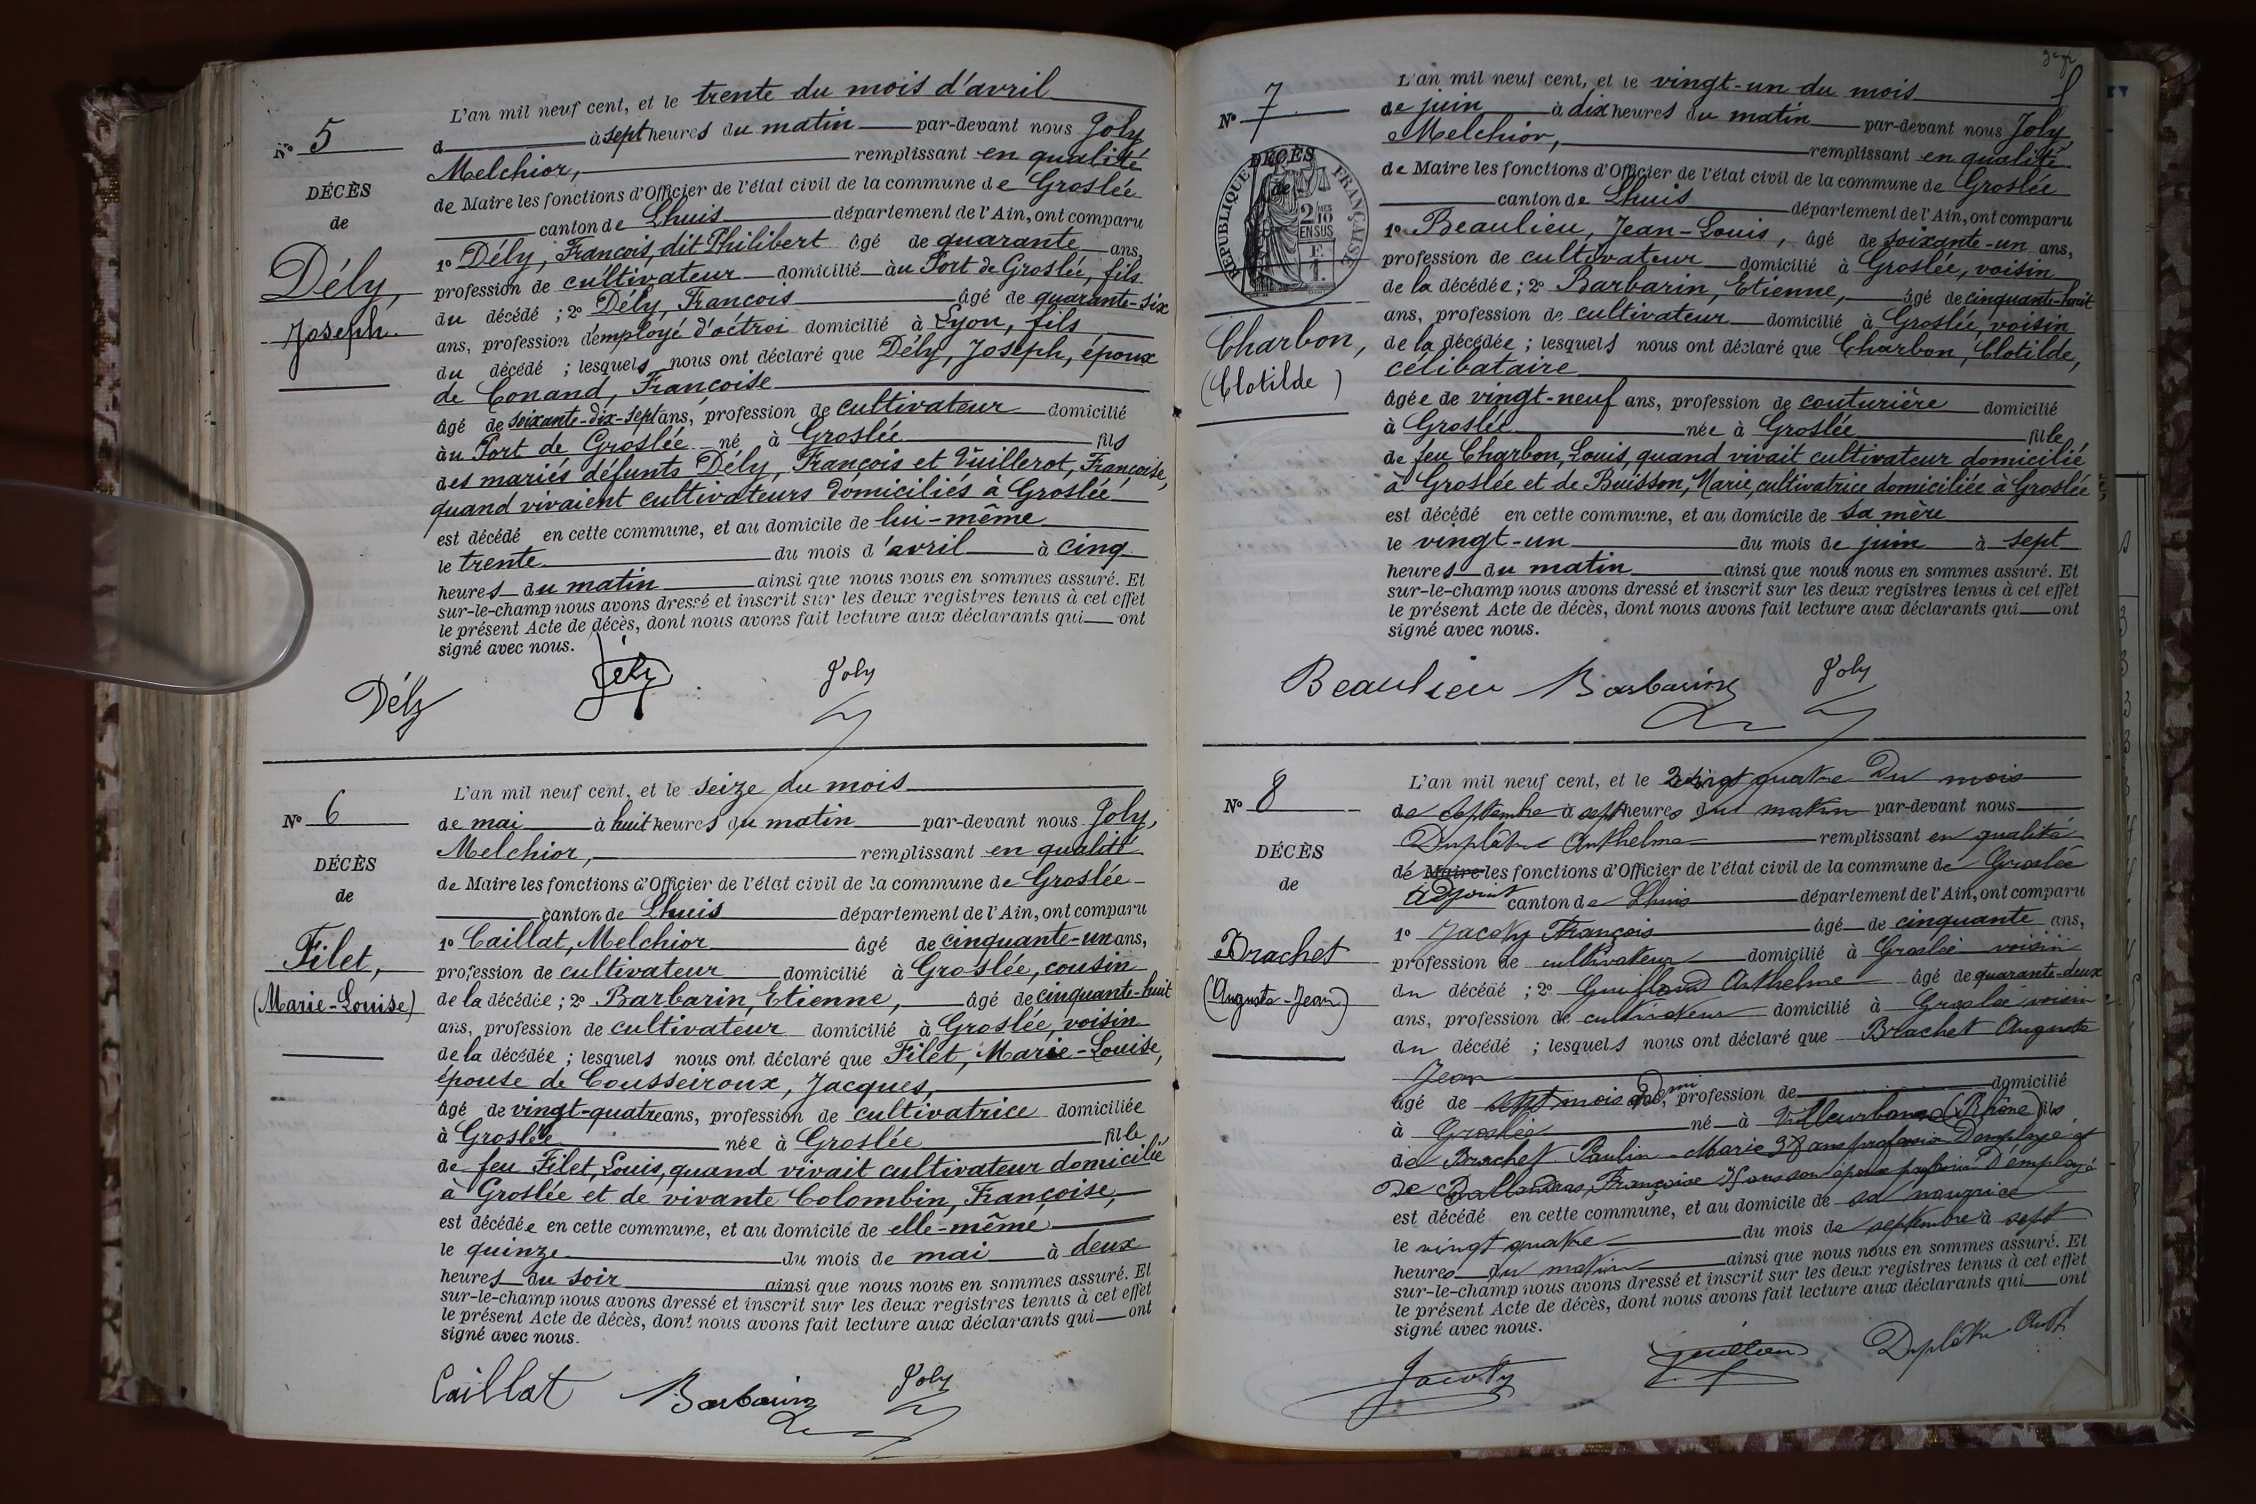 N° 5
DÉCÈS
de
Dély,
Joseph.
L'an mil neuf cent, et le trente du mois d'avril
d à sept heures du matin par-devant nous Joly
Melchior, remplissant en qualité
de Maire les fonctions d'Officier de l'état civil de la commune de Groslée
canton de Lhuis département de l'Ain, ont comparu
1° Dély, François, dit Philibert âgé de quarante ans,
profession de cultivateur domicilié au Port de Groslée, fils
du décédé ; 2° Dély, François âgé de quarante-six
ans, profession d'employé d'octroi domicilié à Lyon, fils
du décédé ; lesquels nous ont déclaré que Dély, Joseph, époux
de Conand, Françoise
âgé de soixante-dix-sept ans, profession de cultivateur domicilié
au Port de Groslée né à Groslée fils
des mariés défunts Dély, François et Vuillerot, Françoise,
quand vivaient cultivateurs domiciliés à Groslée
est décédé en cette commune, et au domicile de lui-même
le trente du mois d'avril à cinq
heures du matin ainsi que nous nous en sommes assuré. Et
sur-le-champ nous avons dressé et inscrit sur les deux registres tenus à cet effet
le présent Acte de décès, dont nous avons fait lecture aux déclarants qui ont
signé avec nous.
Dély Dély Joly
N° 6
DÉCÈS
de
Filet,
(Marie-Louise)
L'an mil neuf cent, et le seize du mois
de mai à huit heures du matin par-devant nous Joly,
Melchior, remplissant en qualité
de Maire les fonctions d'Officier de l'état civil de la commune de Groslée
canton de Lhuis département de l'Ain, ont comparu
1° Caillat, Melchior âgé de cinquante-un ans,
profession de cultivateur domicilié à Groslée, cousin
de la décédée ; 2° Barbarin, Etienne, âgé de cinquante-huit
ans, profession de cultivateur domicilié à Groslée, voisin
de la décédée ; lesquels nous ont déclaré que Filet, Marie-Louise,
épouse de Cousseiroux, Jacques,
âgé de vingt-quatre ans, profession de cultivatrice domiciliée
à Groslée née à Groslée fille
de feu Filet, Louis, quand vivait cultivateur domicilié
à Groslée et de vivante Colombin, Françoise,
est décédée en cette commune, et au domicile de elle-même
le quinze du mois de mai à deux
heures du soir ainsi que nous nous en sommes assuré. Et
sur-le-champ nous avons dressé et inscrit sur les deux registres tenus à cet effet
le présent Acte de décès, dont nous avons fait lecture aux déclarants qui ont
signé avec nous.
Caillat Barbarin Joly
N° 7
DÉCÈS
de
RÉPUBLIQUE FRANÇAISE
2/10 EN SUS
Charbon,
(Clotilde)
L'an mil neuf cent, et le vingt-un du mois
de juin à dix heures du matin par-devant nous Joly,
Melchior, remplissant en qualité
de Maire les fonctions d'Officier de l'état civil de la commune de Groslée
canton de Lhuis département de l'Ain, ont comparu
1° Beaulieu, Jean-Louis, âgé de soixante-un ans,
profession de cultivateur domicilié à Groslée, voisin
de la décédée ; 2° Barbarin, Etienne, âgé de cinquante-huit
ans, profession de cultivateur domicilié à Groslée, voisin
de la décédée ; lesquels nous ont déclaré que Charbon, Clotilde,
célibataire
âgée de vingt-neuf ans, profession de couturière domicilié
à Groslée née à Groslée fille
de feu Charbon, Louis, quand vivait cultivateur domicilié
à Groslée et de Buisson, Marie, cultivatrice domiciliée à Groslée
est décédé en cette commune, et au domicile de sa mère
le vingt-un du mois de juin à sept
heures du matin ainsi que nous nous en sommes assuré. Et
sur-le-champ nous avons dressé et inscrit sur les deux registres tenus à cet effet
le présent Acte de décès, dont nous avons fait lecture aux déclarants qui ont
signé avec nous.
Beaulieu Barbarin Joly
N° 8
DÉCÈS
de
Brachet
(Auguste-Jean)
L'an mil neuf cent, et le vingt quatre du mois
de septembre à sept heures du matin par-devant nous
Duplâtre Anthelme remplissant en qualité
de Maire les fonctions d'Officier de l'état civil de la commune de Groslée
adjoint canton de Lhuis département de l'Ain, ont comparu
1° François âgé de cinquante ans,
profession de cultivateur domicilié à Groslée voisin
du décédé ; 2° Anthelme âgé de quarante-deux
ans, profession de cultivateur domicilié à Groslée voisin
du décédé ; lesquels nous ont déclaré que Brachet Auguste
Jean
âgé de sept mois et demi, profession de domicilié
à Groslée né à Villeurbanne (Rhône) fils
de Brachet Paulin-Marie 38 ans profession d'employé et
de Françoise 35 ans son épouse profession d'employé
est décédé en cette commune, et au domicile de sa nourrice
le vingt quatre du mois de septembre à sept
heures du matin ainsi que nous nous en sommes assuré. Et
sur-le-champ nous avons dressé et inscrit sur les deux registres tenus à cet effet
le présent Acte de décès, dont nous avons fait lecture aux déclarants qui ont
signé avec nous.
Duplâtre Anth